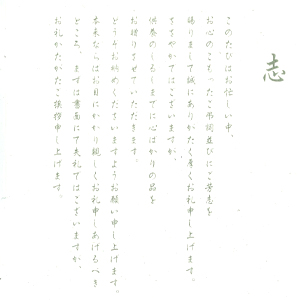 志
このたびはお忙しい中、
お心のこもったご弔問並びにご芳志を
賜りまして誠にありがたく厚くお礼申し上げます。
ささやかではございますが、
供養のしるしまでに心ばかりの品を
お贈りさせていただきます。
どうぞお納めくださいますようお願い申し上げます。
本来ならばお目にかかり親しくお礼申しあげるべき
ところ、まずは書面にて失礼ではございますが、
お礼かたがたご挨拶申し上げます。